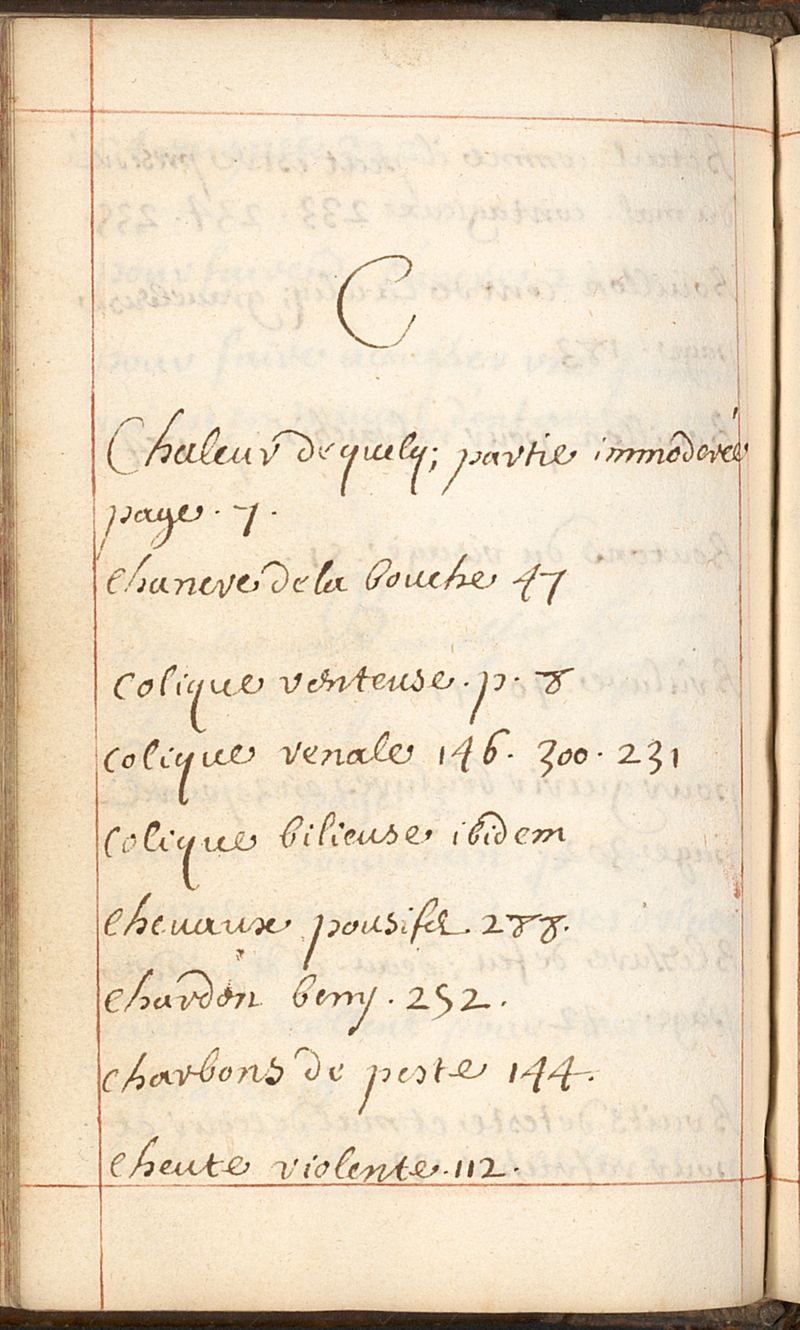 C
Chaleur de quelq; partie immoderée
page . 7 .
Chancre de la bouche 47
Colique venteuse . p. 8
Colique renale 146 . 300 . 231
Colique bilieuse ibidem
Chevaux pousifs 288 .
Chardon beny . 252 .
Charbons de peste 144 .
Cheute violente . 112 .